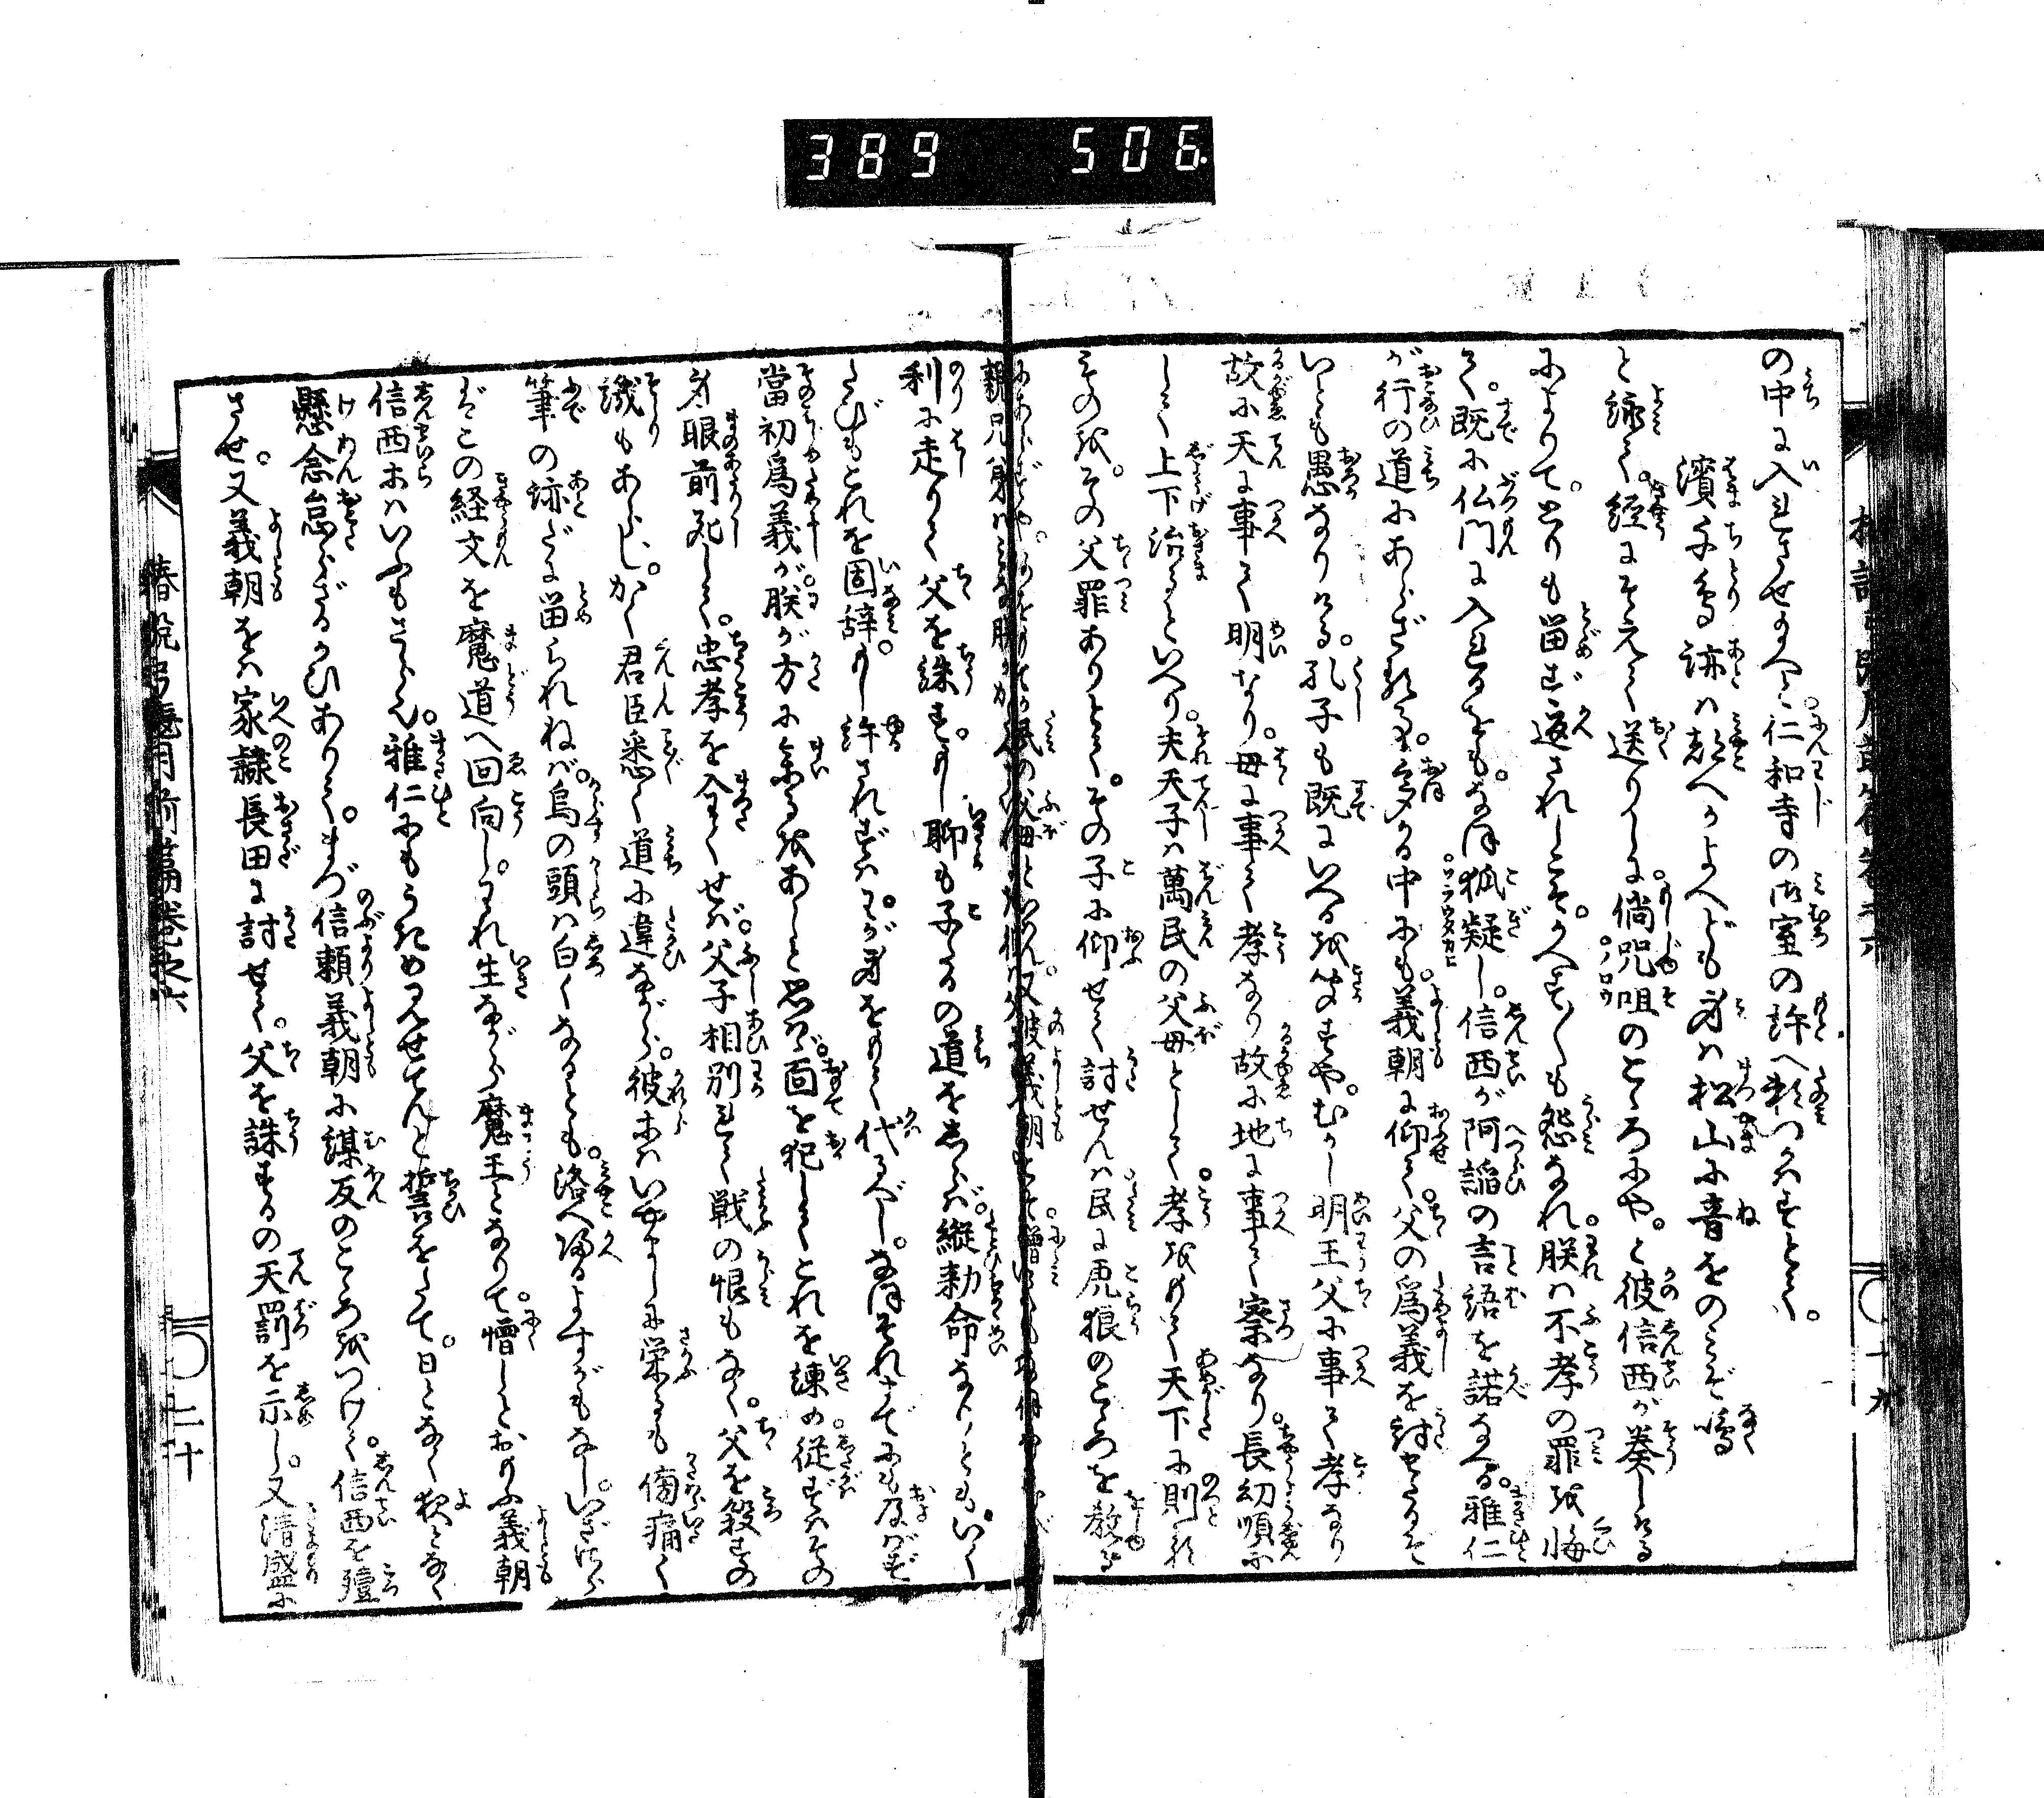 389 506
の中に入れさせ給へと。仁和寺の御室の許へ頼つかはすとて。
濱千鳥跡は都へかよへども身は松山に音をのみぞ鳴
と詠て。經にそえて送りしに。倘咒咀のこゝろにや。と彼信西が奏しける
によりて。とりも留ず返されしこそ。かへす〴〵も怨なれ。朕は不孝の罪を悔
て。既に仏門に入れるをも。なほ狐疑し。信西が阿諂の言語を諾なへる。雅仁
が行の道にあらざれる。多かる中にも。義朝に仰て。父の爲義を討せしこそ
いとも愚なりける。孔子も既にいへるを聞ずや。むかし明王父に事て孝なり
故に天に事て明なり。母に事て孝なり故に地に事て察なり。長幼順ふ
して上下治るといへり。夫天子は萬民の父母として。孝をもて天下に則を
その父罪ありとて。その子に仰せて討せんは。民に虎狼のこゝろを教る
にあらずや。
利に走りて父を誅す。もし聊も子たるの道をしらば。縦勅命なりとも。いく
たびもこれを固辞。もし許されずは。わが身をもて代べし。なほそれさでにも及ばず
當初爲義が。朕が方に參るをあしと思はゞ。面を犯してこれを諫め。從ずはその
身眼前死して。忠孝を全くせば。父子相別れて戦の恨もなく。父を殺すの
譏もあらじ。かく君臣悉く道に違ながら。彼ホはいやましに栄るも傍痛く
筆の跡だに留られねば。烏の頭は白くなるとも。洛へ帰るよすがもなし。いざさら
ばこの経文を魔道へ回向し。われ生ながら魔王となりて。憎しとおもふ義朝
信西ホはいふもさら也。雅仁にもうきめ見せてんと誓をたて。日となく夜となく
懸念怠らざるかひありて。まづ信頼義朝に謀反のこゝろをつけて。信西を殪
させ。又義朝をは家隷長田に討せて。父を誅するの天罰を示し。又清盛に
椿説弓張月前篇卷之六
二十